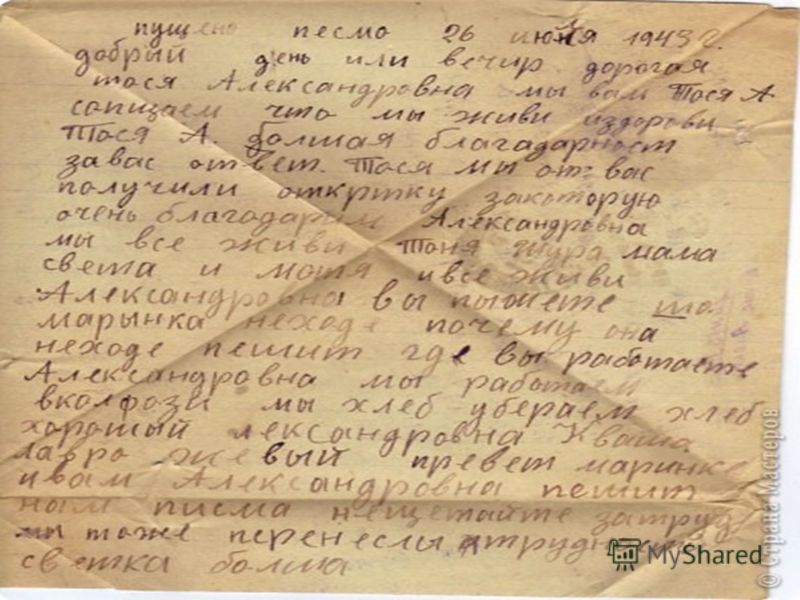 пущено песмо 26 июня 1943 г.
добрый день или вечир дорогая
тося Александровна мы вам Тося А
сопщаем что мы живи издорови
Тося А. болшая благадарност
завас ответ. Тося мы от вас
получили откртку закоторую
очень благодарим Александровна
мы все живи Тоня Шура мама
света и мотя ивсе живи
Александровна вы пыжете што
марынка неходе почему она
неходе пешит где вы работаете
Александровна мы работаем
вколфози мы хлеб убераем хлеб
хороший лександровна Кваша
лавро жевый превет маринке
ивам Александровна пешит
нам писма нещетайте затруд
мы тоже перенеслы
светка болша
© Страна Мастеров
MyShared